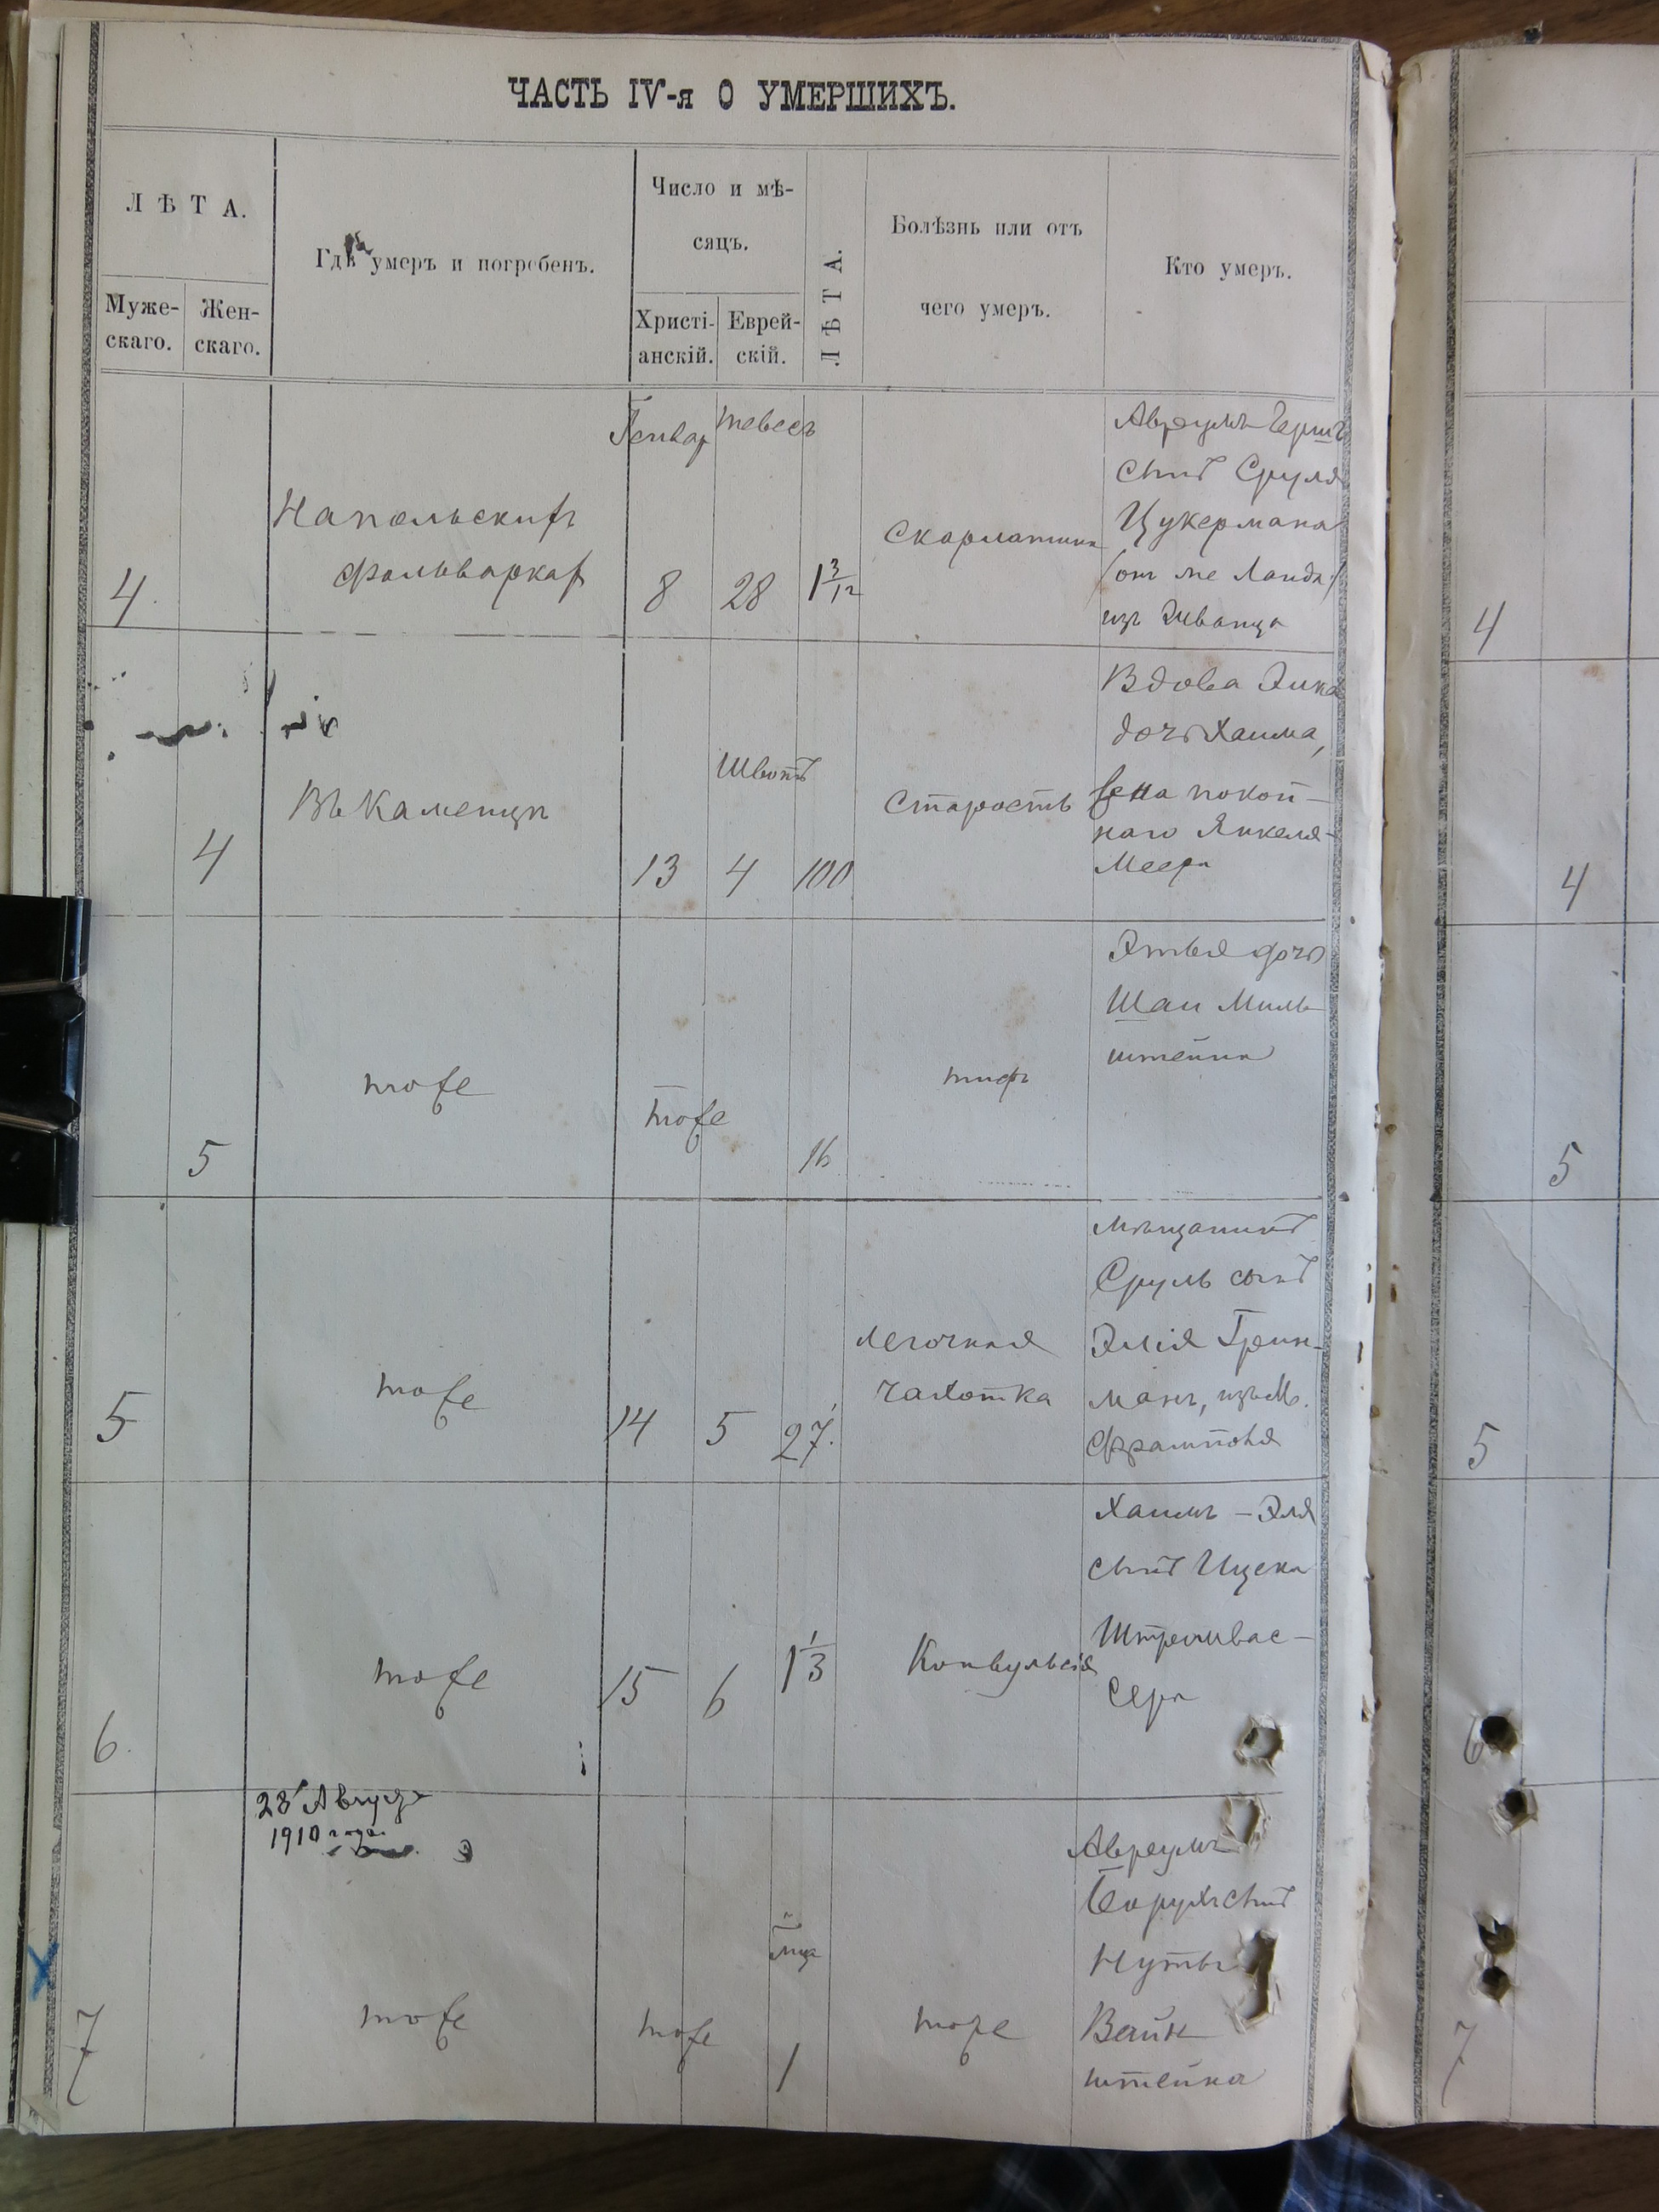 ЧАСТЬ IV-я О УМЕРШИХЪ.
ЛѢТА.
Муже-
скаго.
Жен-
скаго.
Гдѣ умеръ и погребенъ.
Число и мѣ-
сяцъ.
Христі-
анскій.
Еврей-
скій.
ЛѢТА.
Болѣзнь или отъ
чего умеръ.
Кто умеръ.
Генвар
тевесъ
4
На польскихъ
фольварках
8
28
1 3/12
Скарлатина
Авреумъ Гершъ
сынъ Сруля
Цукермана
из Жванца
4
4
Въ Каменцѣ
Шватъ
13
4
100
Старость
Вдова Эика
дочь Хаима,
жена покой-
наго Янкеля-
Меера
4
5
тоже
тоже
16
тифъ
Этья дочь
Шаи Миль-
штейна
5
5
тоже
14
5
27.
легочная
чахотка
мѣщанинъ
Сруль сынъ
Элія Грин-
манъ, изъ м.
Фрамполя
5
6.
тоже
15
6
1 1/3
Конвульсія
Хаимъ - Эля
сынъ Ицека
Штрамвас-
сера
6
28 Августа
1910 года
7
тоже
тоже
мца
1
тоже
Авреумъ
Борухъ сынъ
Нуты
Вайн
штейна
7